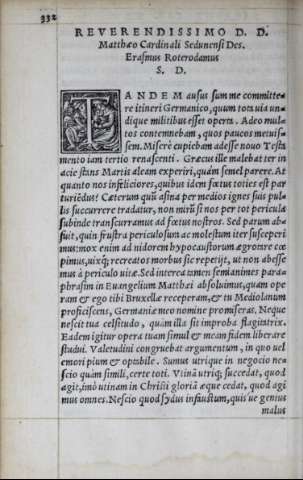 332
REVERENDISSIMO D. D.
Matthæo Cardinali Sedunensi Des.
Erasmus Roterodamus
S. D.
TANDEM ausus sum me committe-
re itineri Germanico, quum tota uia un-
dique militibus esset operta. Adeo mul-
tos contemnebam, quos paucos metuis-
sem. Miserè cupiebam adesse nouo Testa
mento iam tertio renascenti. Græcus ille malebat ter in
acie stans Martis aleam experiri, quàm semel parere. At
quanto nos infeliciores, quibus idem fœtus toties est par
turiēdus! Cæterum quū asina per medios ignes suis pul-
lis succurrere tradatur, non mirū si nos per tot pericula
subinde transcurramus ad fœtus nostros. Sed parum ab-
fuit, quin frustra periculosum ac molestum iter susceperi
mus: mox enim ad nidorem hypocaustorum ægrotare cœ
pimus, uixq; recreatos morbus sic repetijt, ut non abesse
mus à periculo uitæ. Sed interea tamen semianimes para-
phrasim in Euangelium Matthæi absoluimus, quam ope
ram & ego tibi Bruxellæ receperam, & tu Mediolanum
proficiscens, Germaniæ meo nomine promiseras. Neque
nescit tua celsitudo, quàm illa sit improba flagitatrix.
Eadem igitur opera tuam simul & meam fidem liberare
studui. Valetudini congruebat argumentum, in quo uel
emori pium & optabile. Sumus utrique in negocio ne-
scio quàm simili, certe toti. Vtinā utriq; succedat, quod
agit, imò utinam in Christi gloriā æque cedat, quod agi
mus omnes. Nescio quod sydus infaustum, quis ue genius
malus